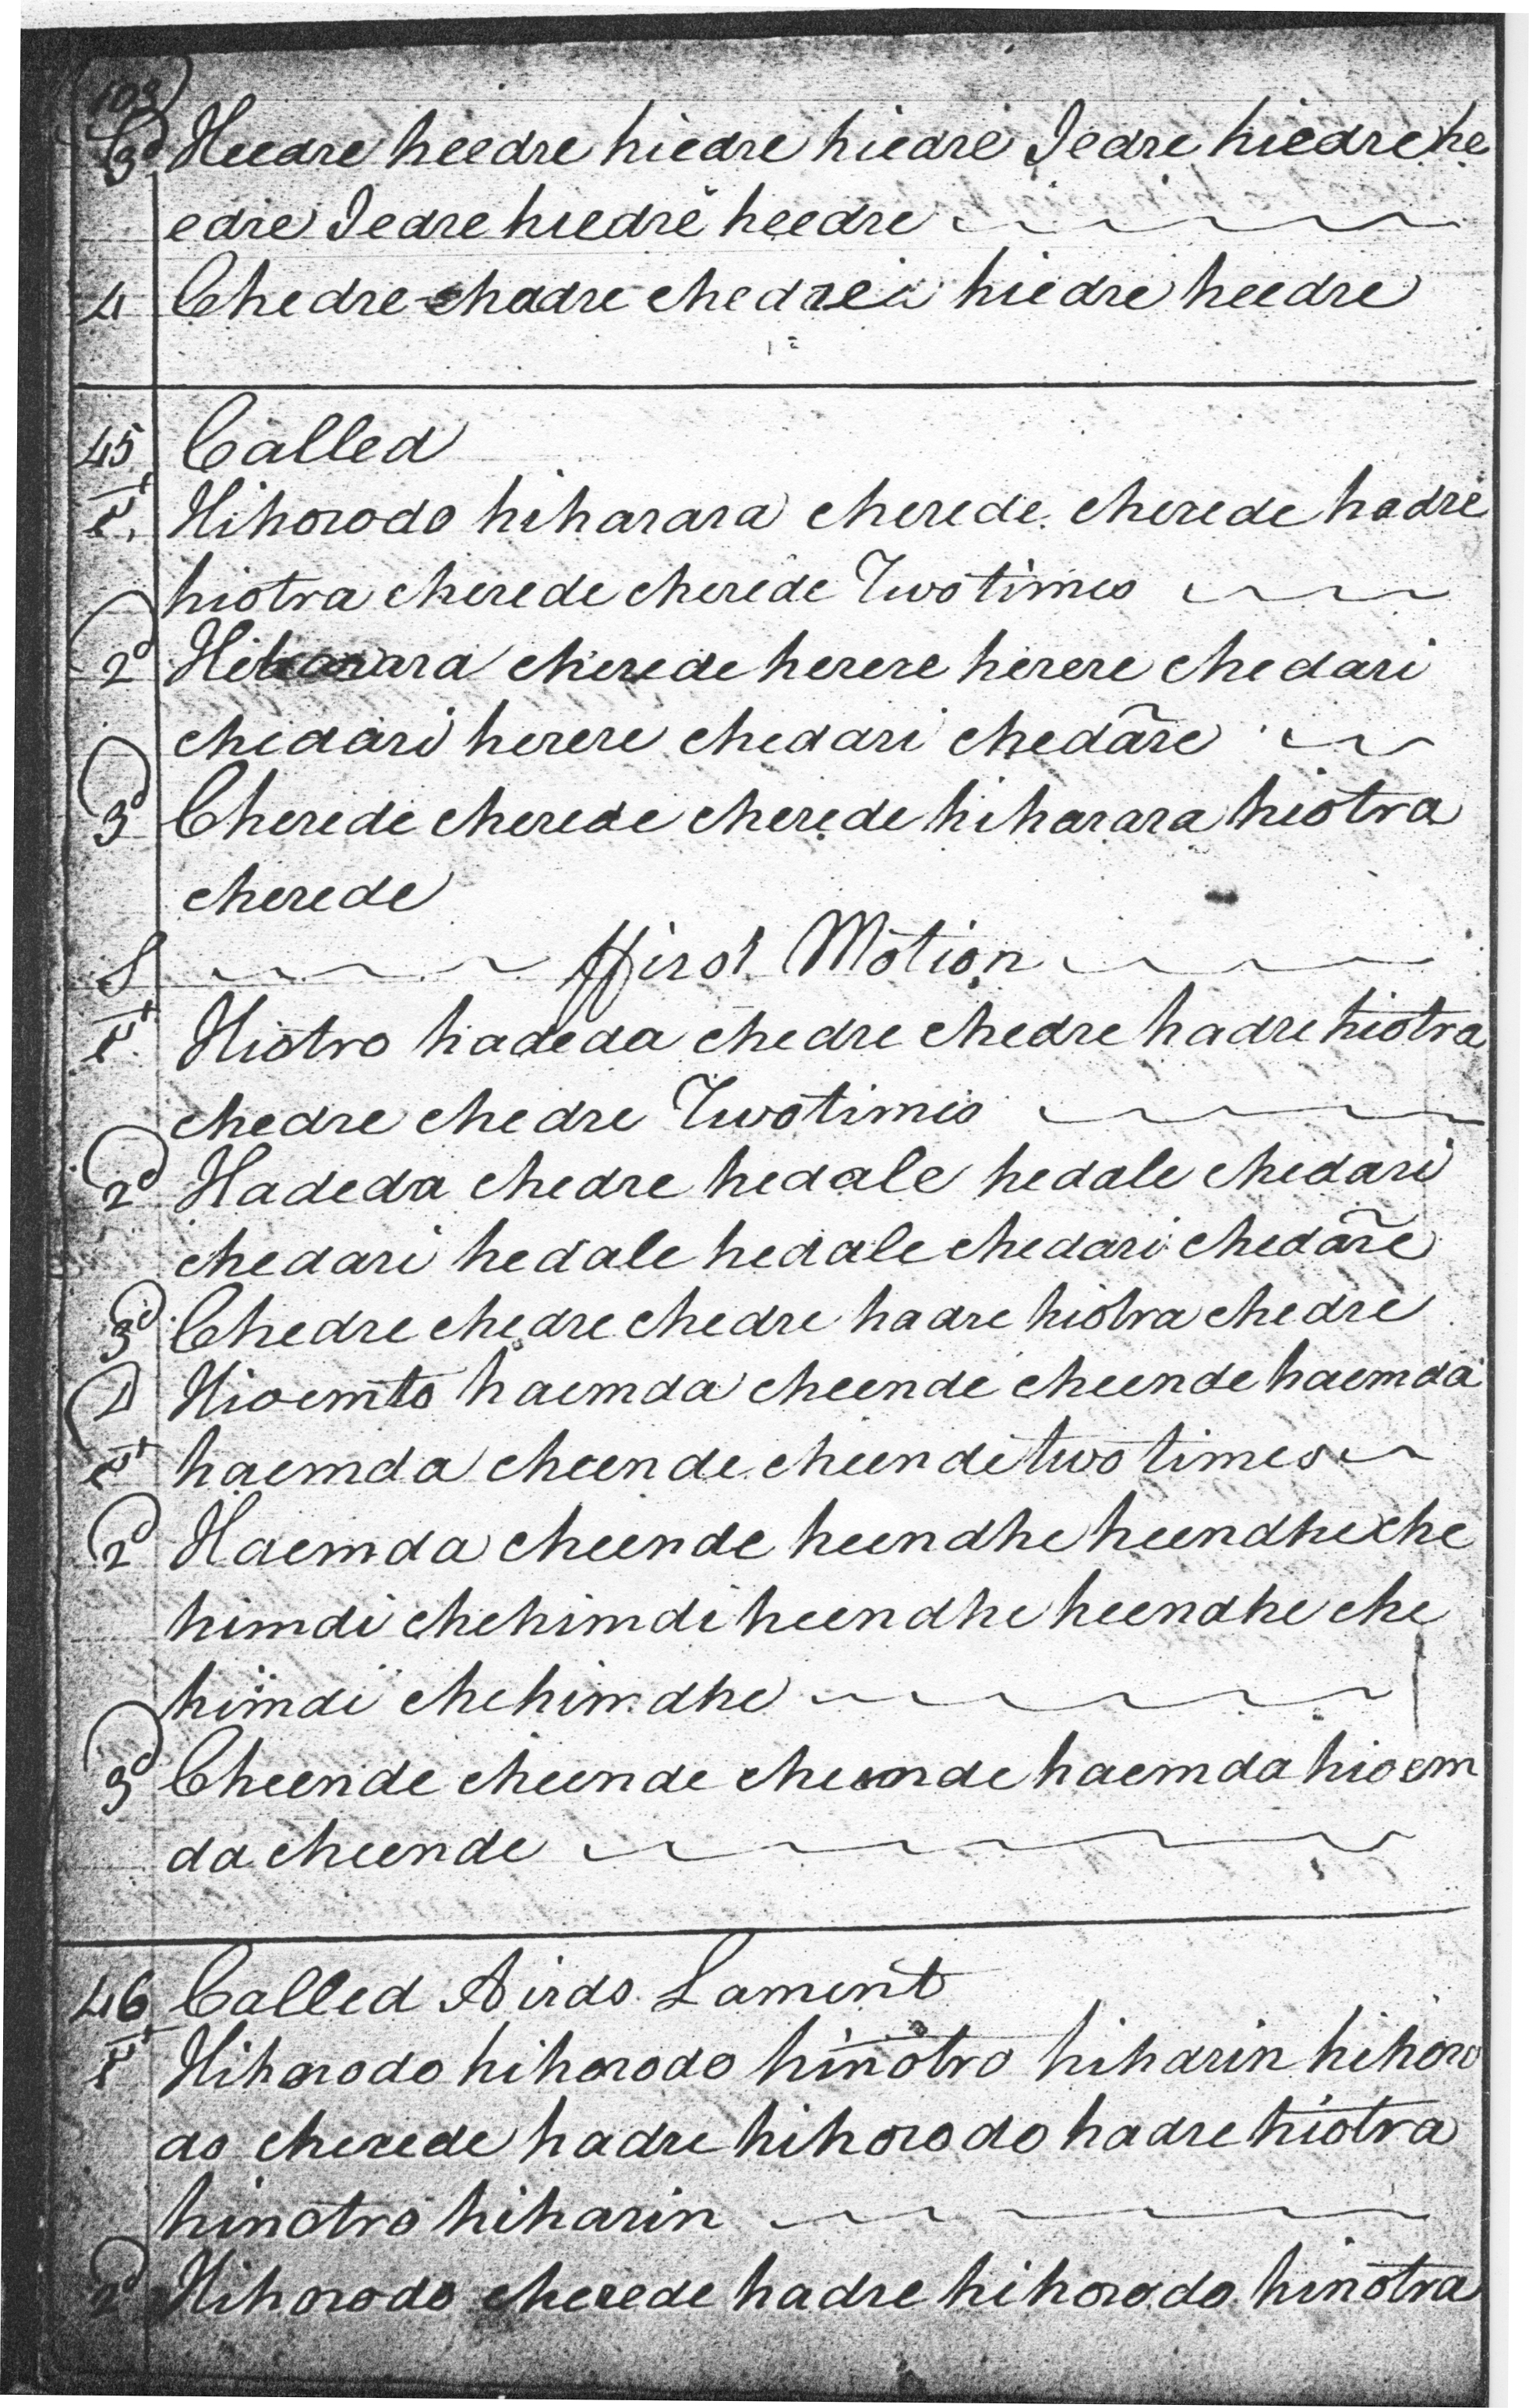 3d Heedre heedre hiedre hiedre Iedre hiedre he
edre Iedre hiedre heedre
4 Chedre chadre chedreà hiedre heedre
45 Called
1st Hihorodo hiharara cherede cherede hadre
hiotra cherede cherede Two times
2d cherede herere herere chedari
chedari herere chedari chedare
3d Cherede cherede cherede hiharara hiotra
cherede
S ffirst Motion
1st Hiotro hadeda chedre chedre hadre hiotra
chedre chedre Two times
2d Hadeda chedre hedale hedale chedari
chedari hedale hedale chedari chedare
3d Chedre chedre chedre hadre hiotra chedre
D Hioemto haemda cheende cheende haemda
1st haemda cheende cheende two times
2d Haemda cheende heendhe heendhe che
himdi chehimdi heendhe heendhe che
himdi chehimdhe
3d Cheende cheende cheende haemda hioem
da cheende
46 Called Airds Lament
1st Hihorodo hihorodo hinotro hiharin hihoro
do cherede hadre hihorodo hadre hiotra
hinotro hiharin
2d Hihorodo cherede hadre hihorodo hinotra